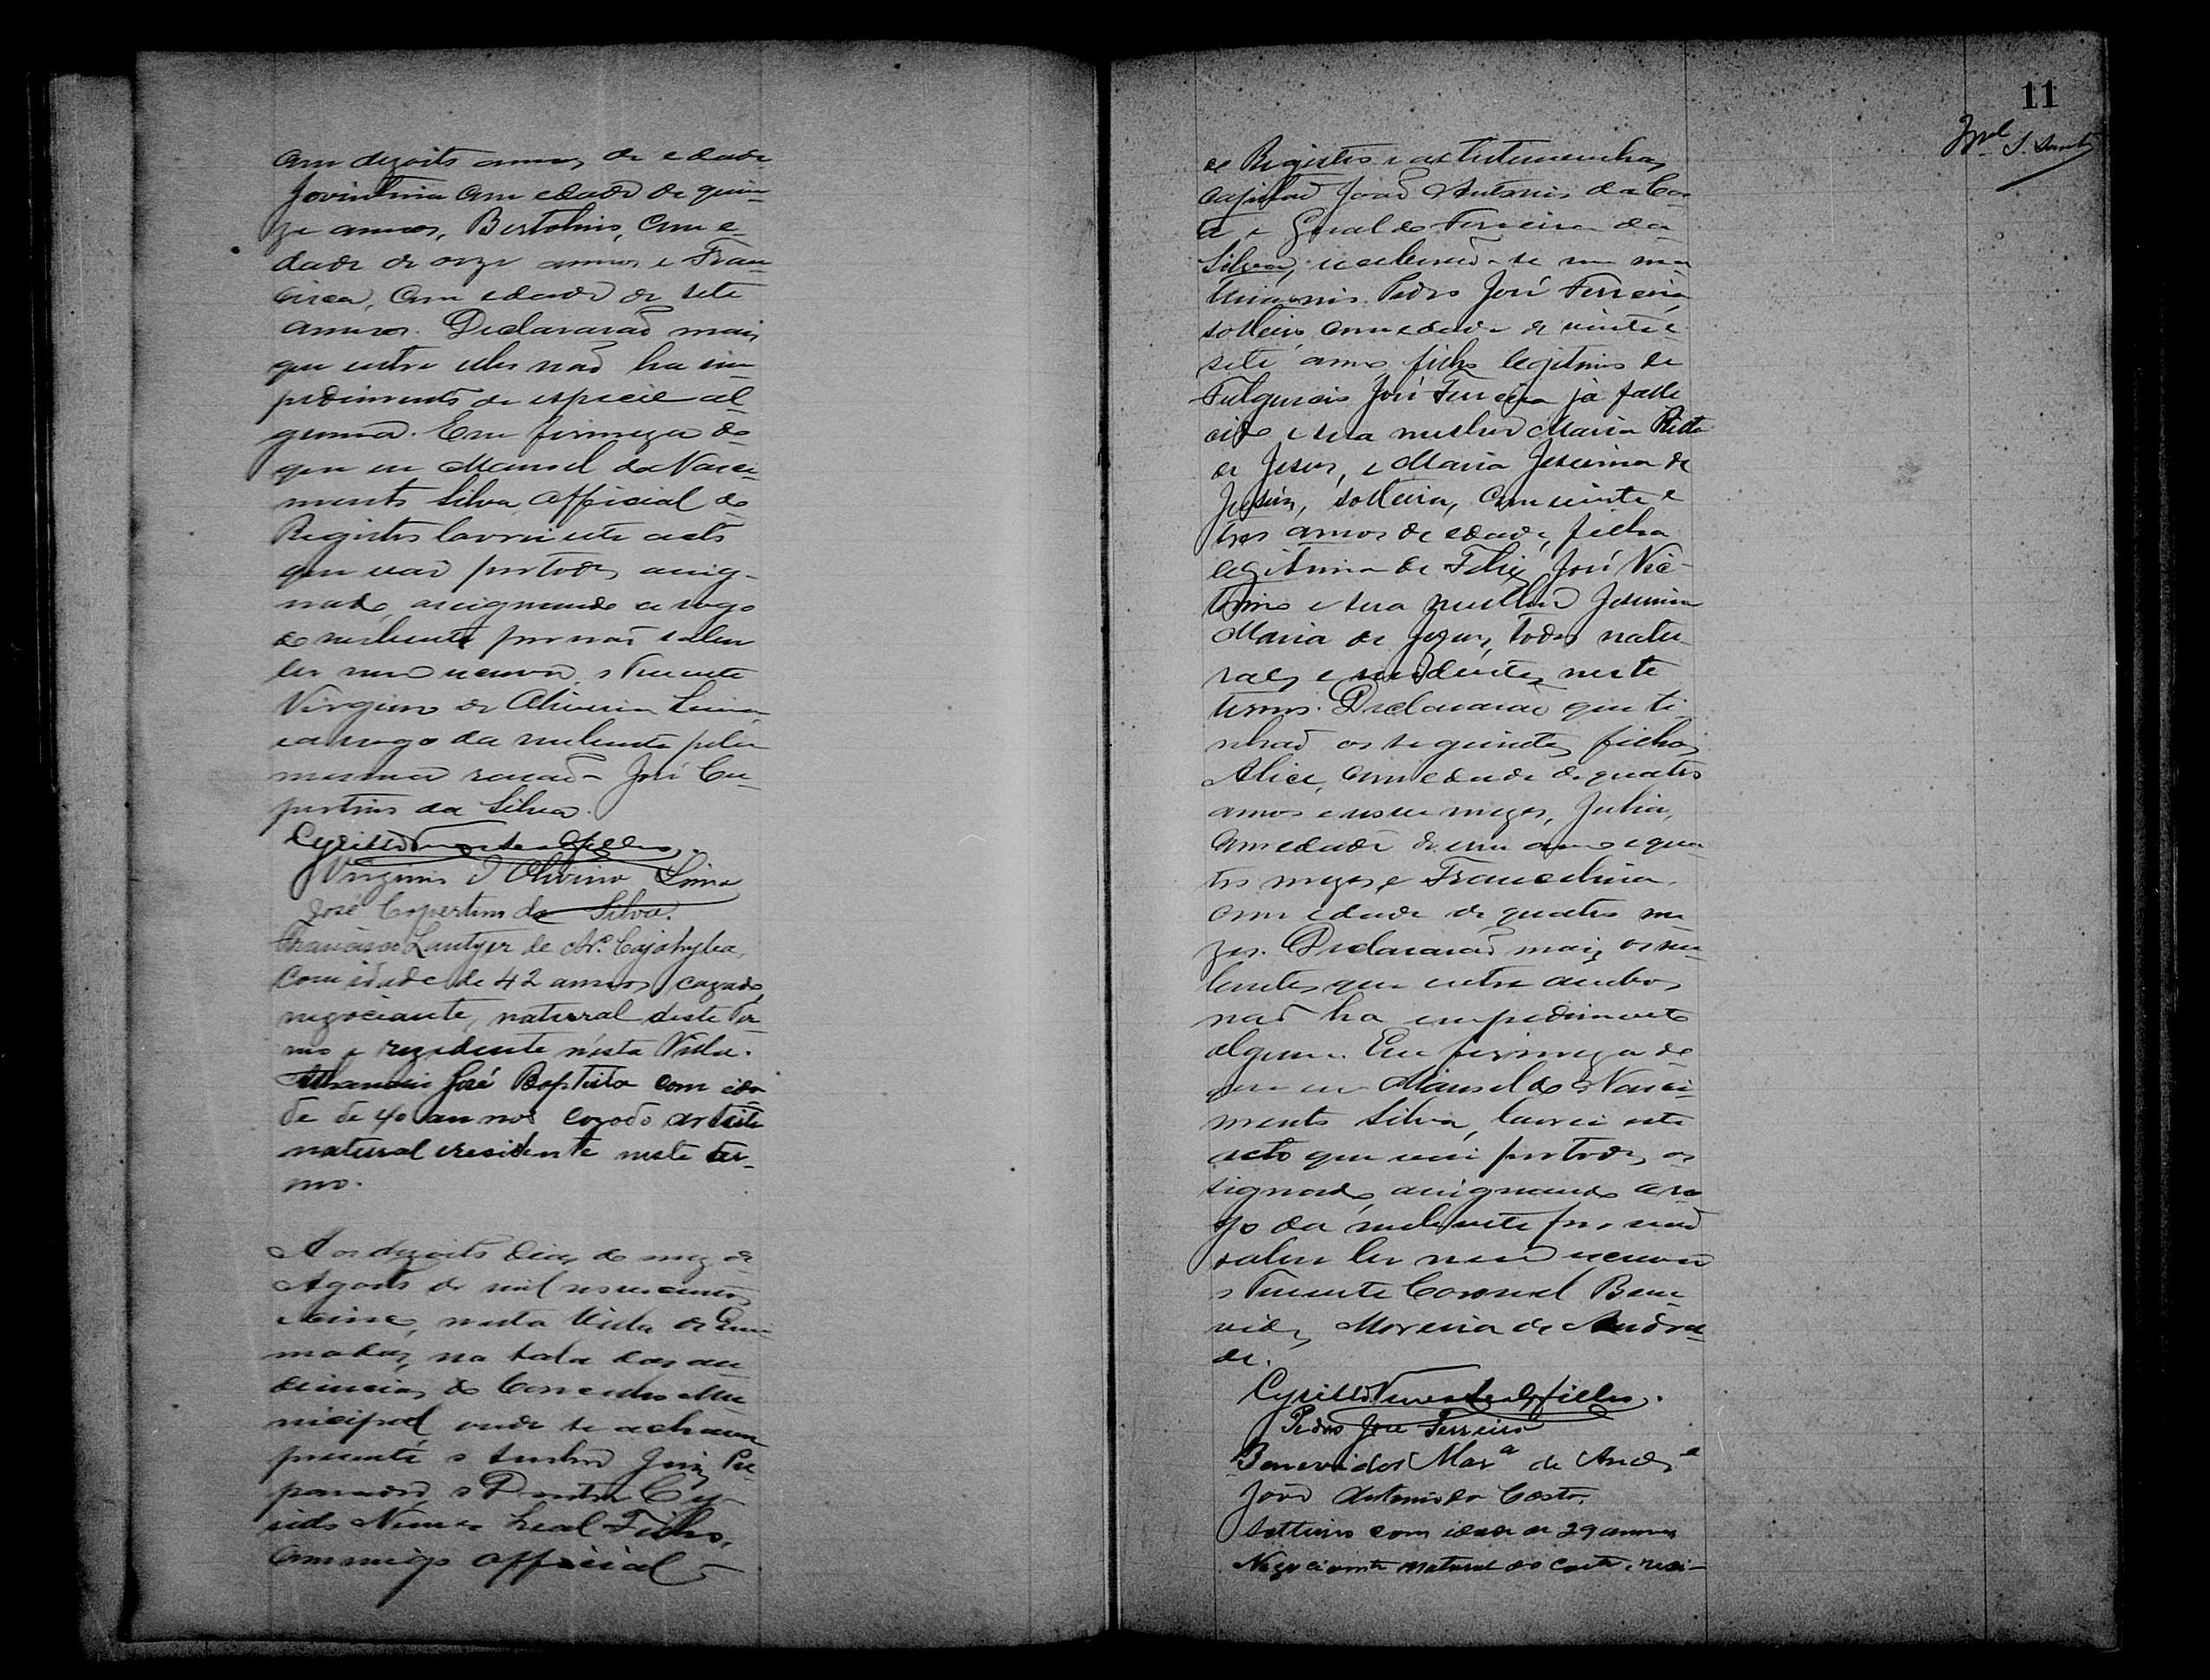 com dezoito annos de edade
Jovintina com edade de quin-
ze annos, Bertolino, com e-
dade de onze annos e Fran-
cisca, com edade de sete
annos. Declararão mais
que entre elles não ha im-
pedimento de especie al-
guma. Em firmeza do
que eu Manoel do Nasci-
mento Silva Official do
Registro lavrei este acto
que vae por todos assig-
nado, assignando a rogo
do nubente por não saber
ler nem escrever, o Tenente
Virginio de Oliveira Lima
e a rogo da nubente pela
mesma rasão José Cu-
pertino da Silva.
Cyrillo Nunes Leal Filho.
Virginio d Oliveira Lima
José Copertino da Silva.
Francisco Lantyer de Ar.º Cajahyba,
com idade de 42 annos, cazado,
negociante, natural deste Ter-
mo e rezidente n'esta Villa.
José Baptista com ida
de de 40 annos cazado artista
natural e residente neste ter-
mo.
Aos dezoito dias do mez de
Agosto de mil novecentos
e cinco, nesta Villa de Quei-
madas, na sala das au
diencias do Conselho Mu
nicipal, onde se achavam
presente o senhor Juiz Pre-
parador, o Doutor Cy-
rillo Nunes Leal Filho,
commigo Official
11
Mel S.
de Registro e as testemunhas
capitão João Antonio da Cos-
ta e Geraldo Ferreira da
Silva, receberão-se em ma
trimonio Pedro José Ferreira,
solteiro, com edade de vinte e
sete annos, filho legitimo de
Fulgencio José Ferreira já falle
cido e sua mulher Maria Ritta
de Jesus, e Maria Jesuina de
Jesus, solteira, com vinte e
tres annos de edade, filha
legitima de Felix José Vic-
torino e sua mulher Jesuina
Maria de Jezus, todos natu-
raes e residentes neste
termo. Declararão que ti-
nhão os seguintes filhos
Alice, com edade de quatro
annos e nove mezes, Julia,
com edade de um anno e qua
tro mezes, e Francelina,
com edade de quatro me
zes. Declararão mais os nu-
bentes que entre ambos
não ha impedimento
algum. Em firmeza do
que eu Manoel do Nasci-
mento Silva, lavrei este
acto que vai por todos as
signado, assignando a ro
go da nubente por não
saber ler nem escrever
o Tenente Coronel Bene
vides Moreira de Andra-
de.
Cyrillo Nunes Leal Filho.
Pedro José Ferreira
Benevides Morª de Andrᵉ
João Antonio da Costa,
solteiro com idade de 29 annos
Negociante natural do e resi-